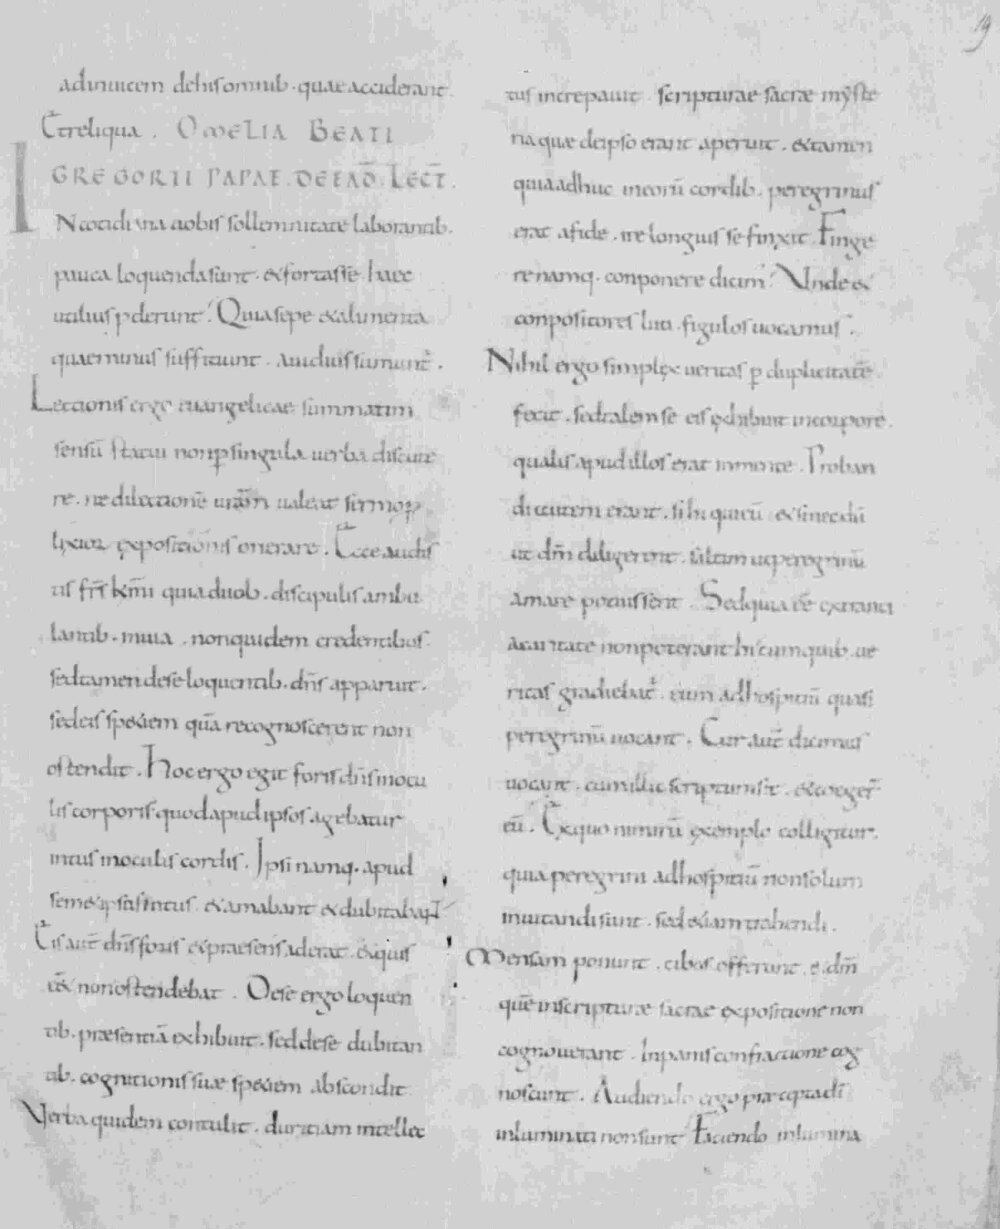 19
adinuicem dehisomnib. quae acciderant.
Et reliqua. OMELIA BEATI
GREGORII PAPAE. DE EAD̄ LECT̄.
IN cotidiana uobis sollemnitate laborantib.
pauca loquenda sunt. & fortasse haec
utilius p̄derunt. Quia sepe & alimenta
quae minus sufficiunt. auidius sumunt᷑.
Lectionis ergo euangelicae summatim
sensū statui non ꝑ singula uerba discute
re. ne dilectionē urām ualeat sermo p̱
lixior expositionis onerare. Ecce audis
tis frs̄ km̄i quia duob. discipulis ambu
lantib. in uia. non quidem credentibus.
sed tamen de se loquentib. dn̄s apparuit.
sed eis speciem quā recognoscerent non
ostendit. Hoc ergo egit foris dn̄s in ocu
lis corporis quod apud ipsos agebatur
intus in oculis cordis. Ipsi namq. apud
sem&ipsos intus. & amabant & dubitabant
Eis aut̄ dn̄s foris & praesens aderat. & quis
eēt non ostendebat. De se ergo loquen
tib. præsentiā exhibuit. sed de se dubitan
tib. cognitionis suæ speciem abscondit
Verba quidem contulit. duritiam intellec
tus increpauit. scripturae sacræ myste
ria quæ de ipso erant aperuit. & tamen
quia adhuc in eorū cordib. peregrinus
erat a fide. ire longius se finxit. Finge
re namq. conponere dicim᾽. Unde &
conpositores luti. figulos uocamus.
Nihil ergo simplex ueritas ꝑ duplicitatē
fecit. sed talem se eis exhibuit in corpore.
qualis apud illos erat in mente. Proban
di autem erant. si hi qui eū & si necdū
ut dm̄ diligerent. saltim ut peregrinū
amare potuissent. Sed quia eē extranei
a caritate non poterant hi cum quib. ue
ritas gradiebat᷑. eum ad hospitiū quasi
peregrinū uocant. Cur aut̄ dicimus
uocant. cum illic scriptum sit. & coeger̄
eū. Ex quo nimirū exemplo colligitur.
quia peregrini ad hospitiū non solum
inuitandi sunt. sed etiam trahendi.
Mensam ponunt. cibos offerunt. & dm̄
quē in scripturæ sacrae expositione non
cognouerant. In panis confractione cog
noscunt. Audiendo ergo præcepta dī
inluminati non sunt Faciendo inlumina